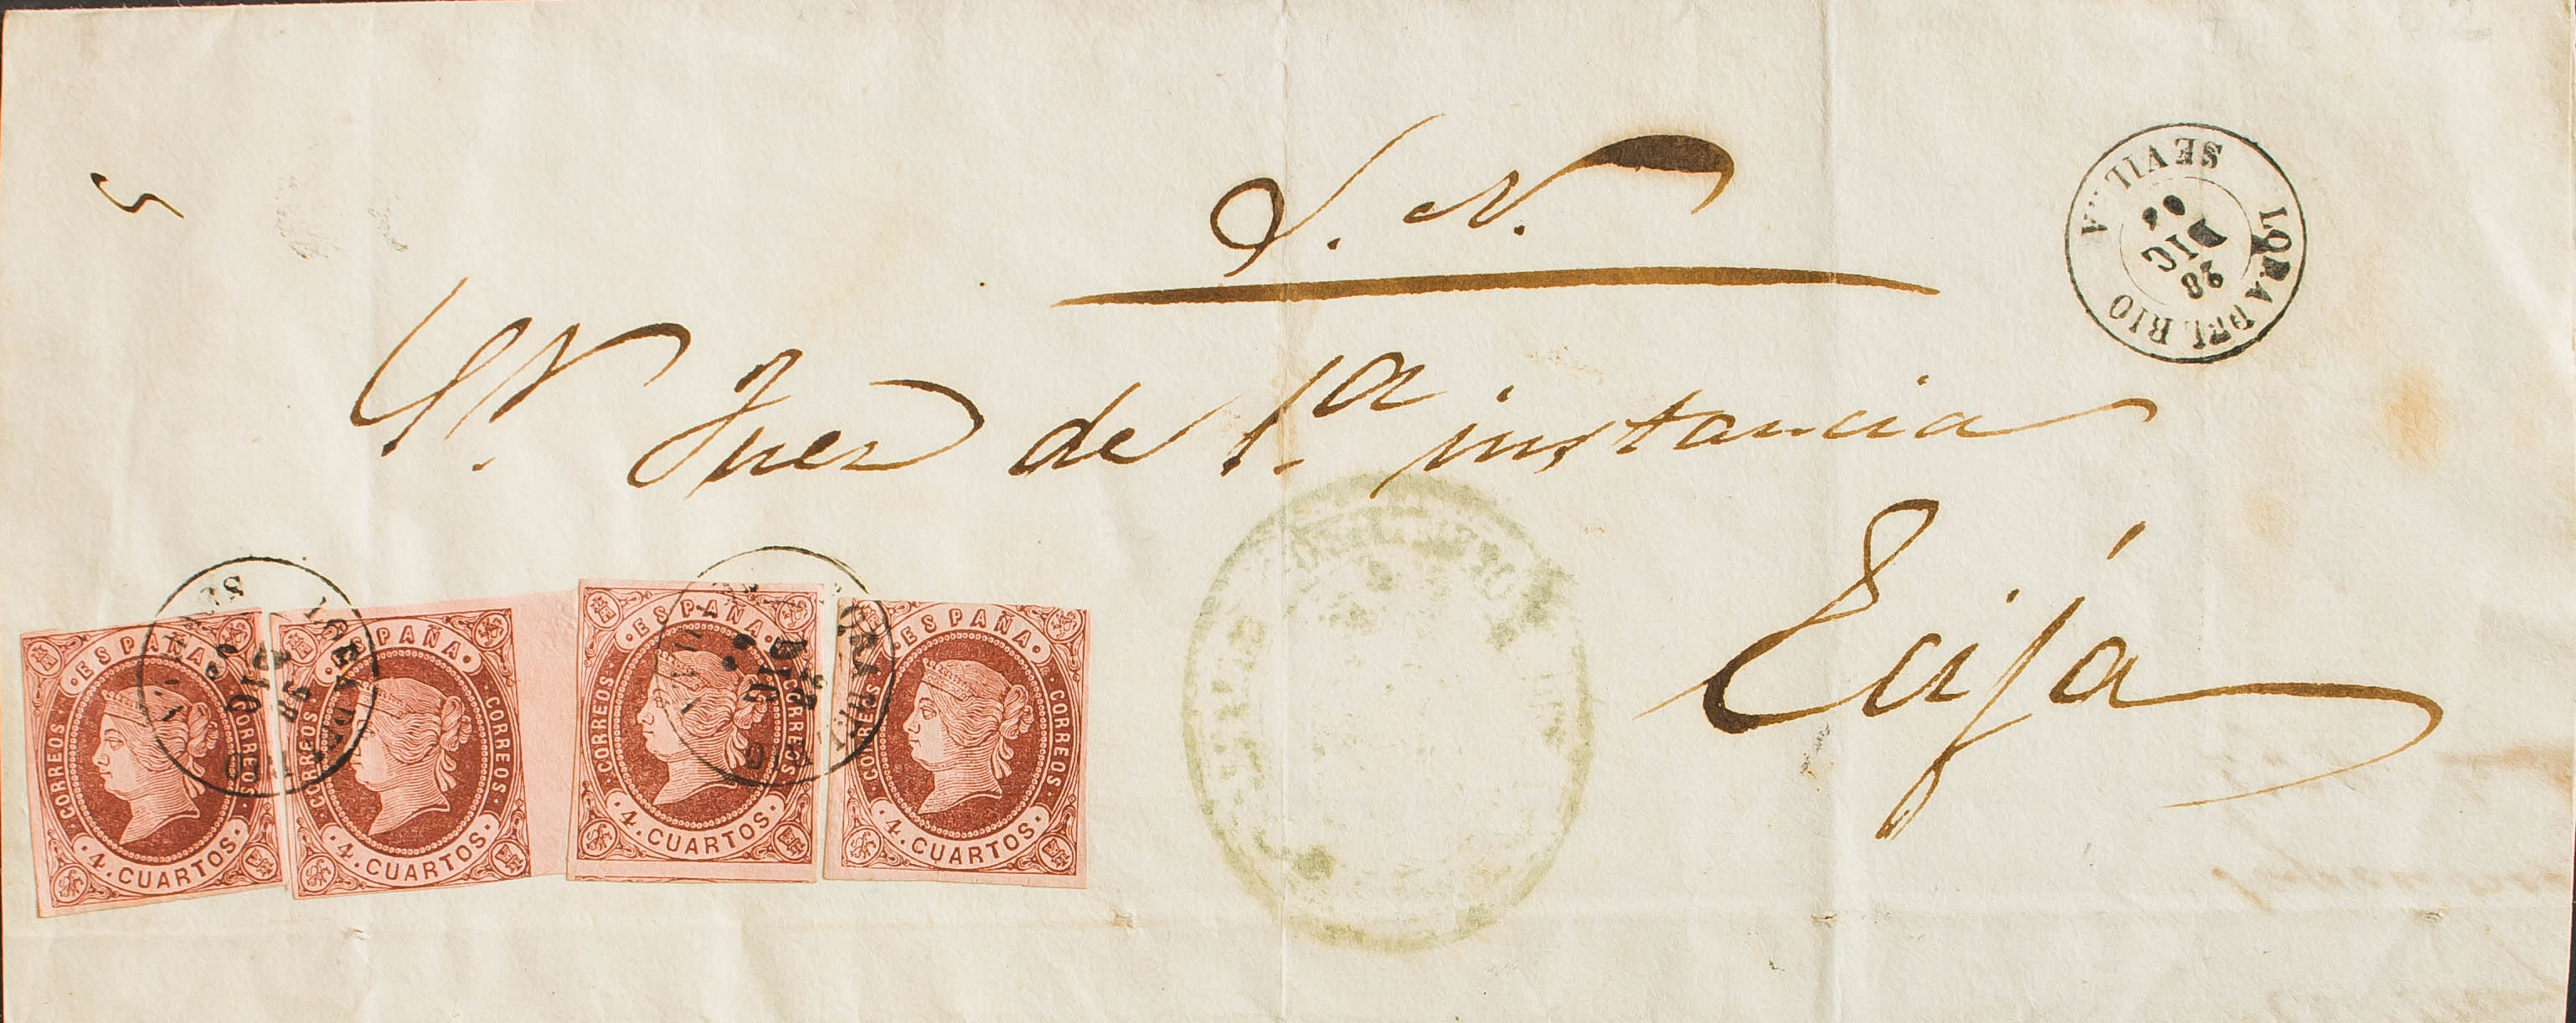 S. N.
LORA DEL RIO
28
DIC
SEVILLA
5
Sr. Juez de 1.ª instancia
Ecijá
ESPAÑA
CORREOS
CORREOS
4. CUARTOS
ESPAÑA
CORREOS
CORREOS
4. CUARTOS
ESPAÑA
CORREOS
CORREOS
4. CUARTOS
ESPAÑA
CORREOS
CORREOS
4. CUARTOS
LORA DEL RIO
28
DIC
LORA DEL RIO
28
DIC